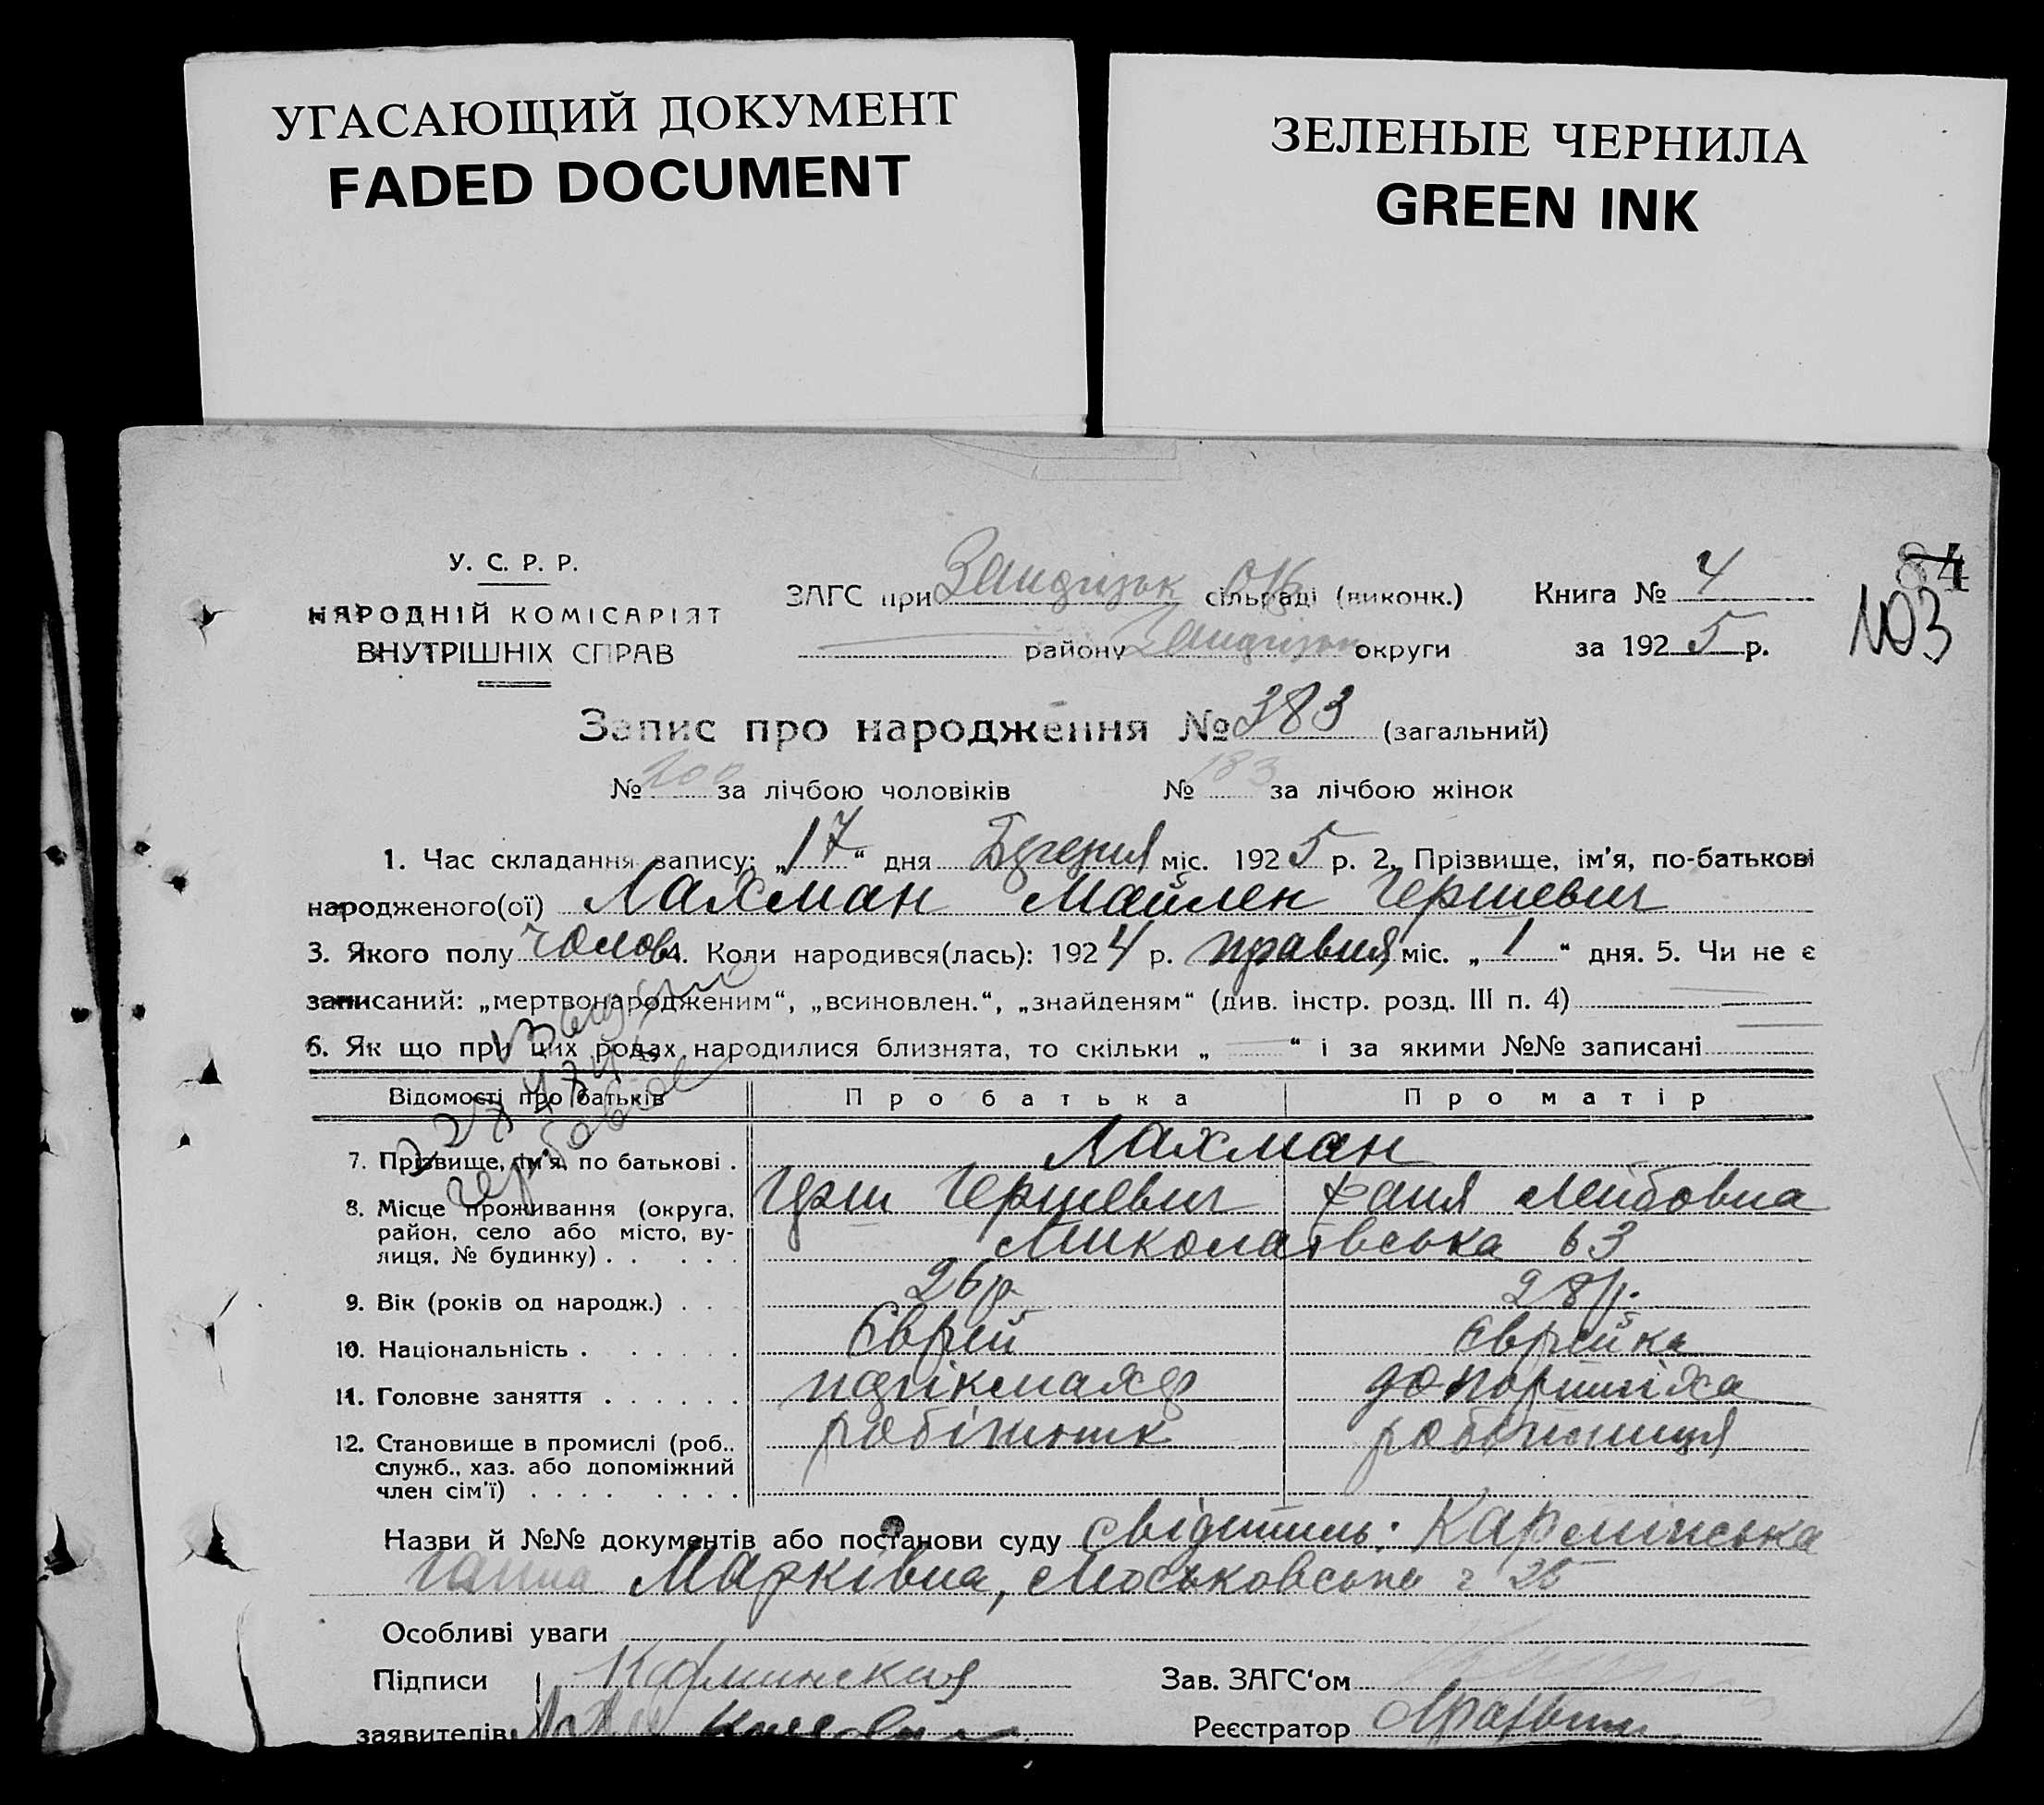 УГАСАЮЩИЙ ДОКУМЕНТ
FADED DOCUMENT
ЗЕЛЕНЫЕ ЧЕРНИЛА
GREEN INK
У. С. Р. Р.
НАРОДНІЙ КОМІСАРІЯТ
ВНУТРІШНІХ СПРАВ
ЗАГС при сільраді (виконк.)
району округи
Книга № 4
за 1925 р.
84
103
Запис про народження № 383 (загальний)
№ 200 за лічбою чоловіків № 183 за лічбою жінок
1. Час складання запису: „17“ дня міс. 1925 р. 2. Прізвище, ім'я, по-батькові
народженого(ої) Лахман Майлен Гершевич
3. Якого полу чолов. 4. Коли народився(лась): 1924 р. травня міс. „1“ дня. 5. Чи не є
записаний: „мертвонародженим“, „всиновлен.“, „знайденям“ (див. інстр. розд. III п. 4)
6. Як що при цих родах народилися близнята, то скільки „ “ і за якими №№ записані
Відомості про батьків Про батька Про матір
7. Прізвище, ім'я, по батькові . Лахман
Герш Гершевич Ханя Лейбовна
8. Місце проживання (округа, район, село або місто, вулиця, № будинку) . . . . . Миколаївська 63
9. Вік (років од народж.) . . 26 р. 28 р.
10. Національність . . . . . . Єврей Єврейка
11. Головне заняття . . . . . .
12. Становище в промислі (роб., служб., хаз. або допоміжний член сім'ї) . . . . . . . . робітник робітниця
Назви й №№ документів або постанови суду свідитель: Кармінська
Ганна Марківна, Московська 25
Особливі уваги
Підписи Карминская Зав. ЗАГС‘ом
заявителів: Реєстратор